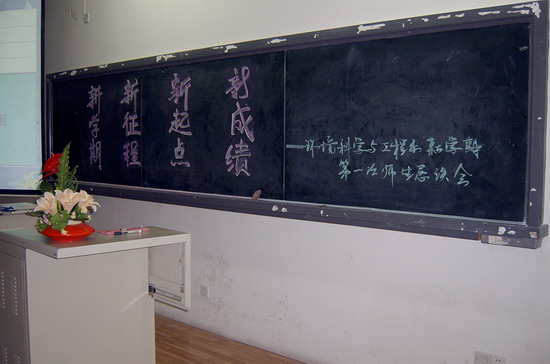 新学期
新征程
新起点
新成绩
——环境科学与工程系新学期
第一次师生恳谈会